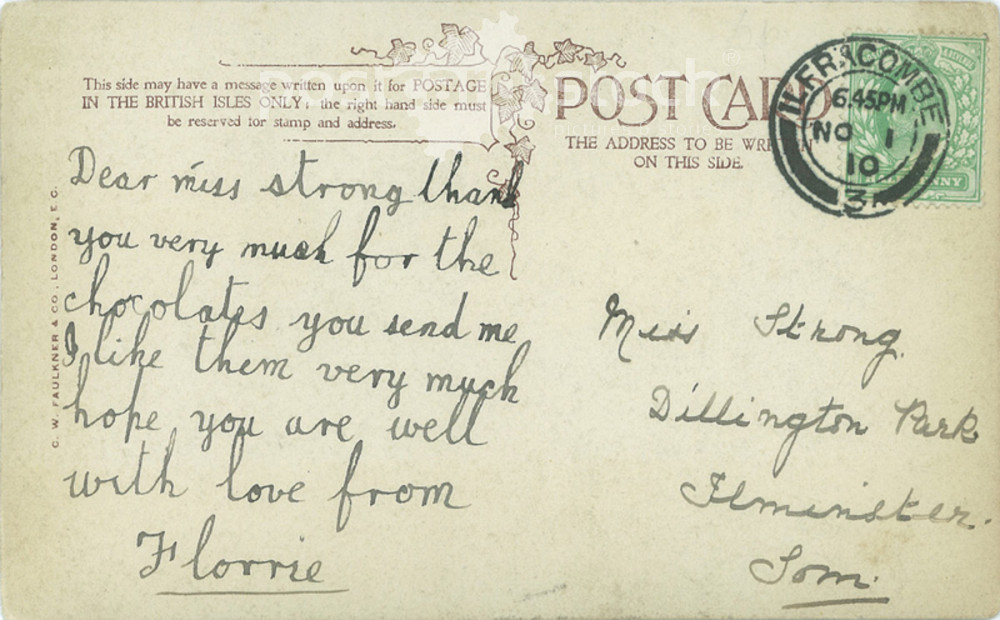 This side may have a message written upon it for POSTAGE
IN THE BRITISH ISLES ONLY, the right hand side must
be reserved for stamp and address.
POST CARD
THE ADDRESS TO BE WRITTEN
ON THIS SIDE.
ILFRACOMBE
6.45PM
NO 1
10
3
Dear miss strong thank
you very much for the
chocolates you send me
I like them very much
hope you are well
with love from
Florrie
Miss Strong.
Dillington Park
Ilminster.
Som.
C. W. FAULKNER & CO., LONDON, E.C.